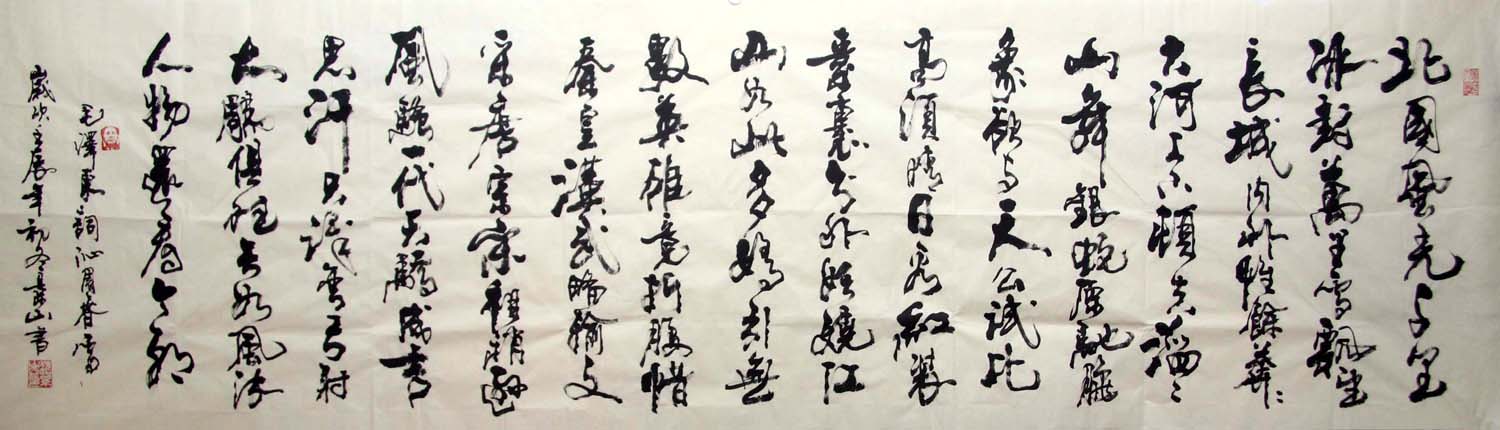 北國風光千里
冰封萬里雪飄望
長城內外惟餘莽〻
大河上下頓失滔〻
山舞銀蛇原馳蠟
象欲與天公試比
高須晴日看紅裝
素裹分外妖嬈江
山如此多嬌引無
數英雄競折腰惜
秦皇漢武略輸文
采唐宗宋祖稍遜
風騷一代天驕成吉
思汗只識彎弓射
大鵰俱往矣數風流
人物還看今朝
毛澤東詞沁園春雪
歲次壬辰年初冬山書